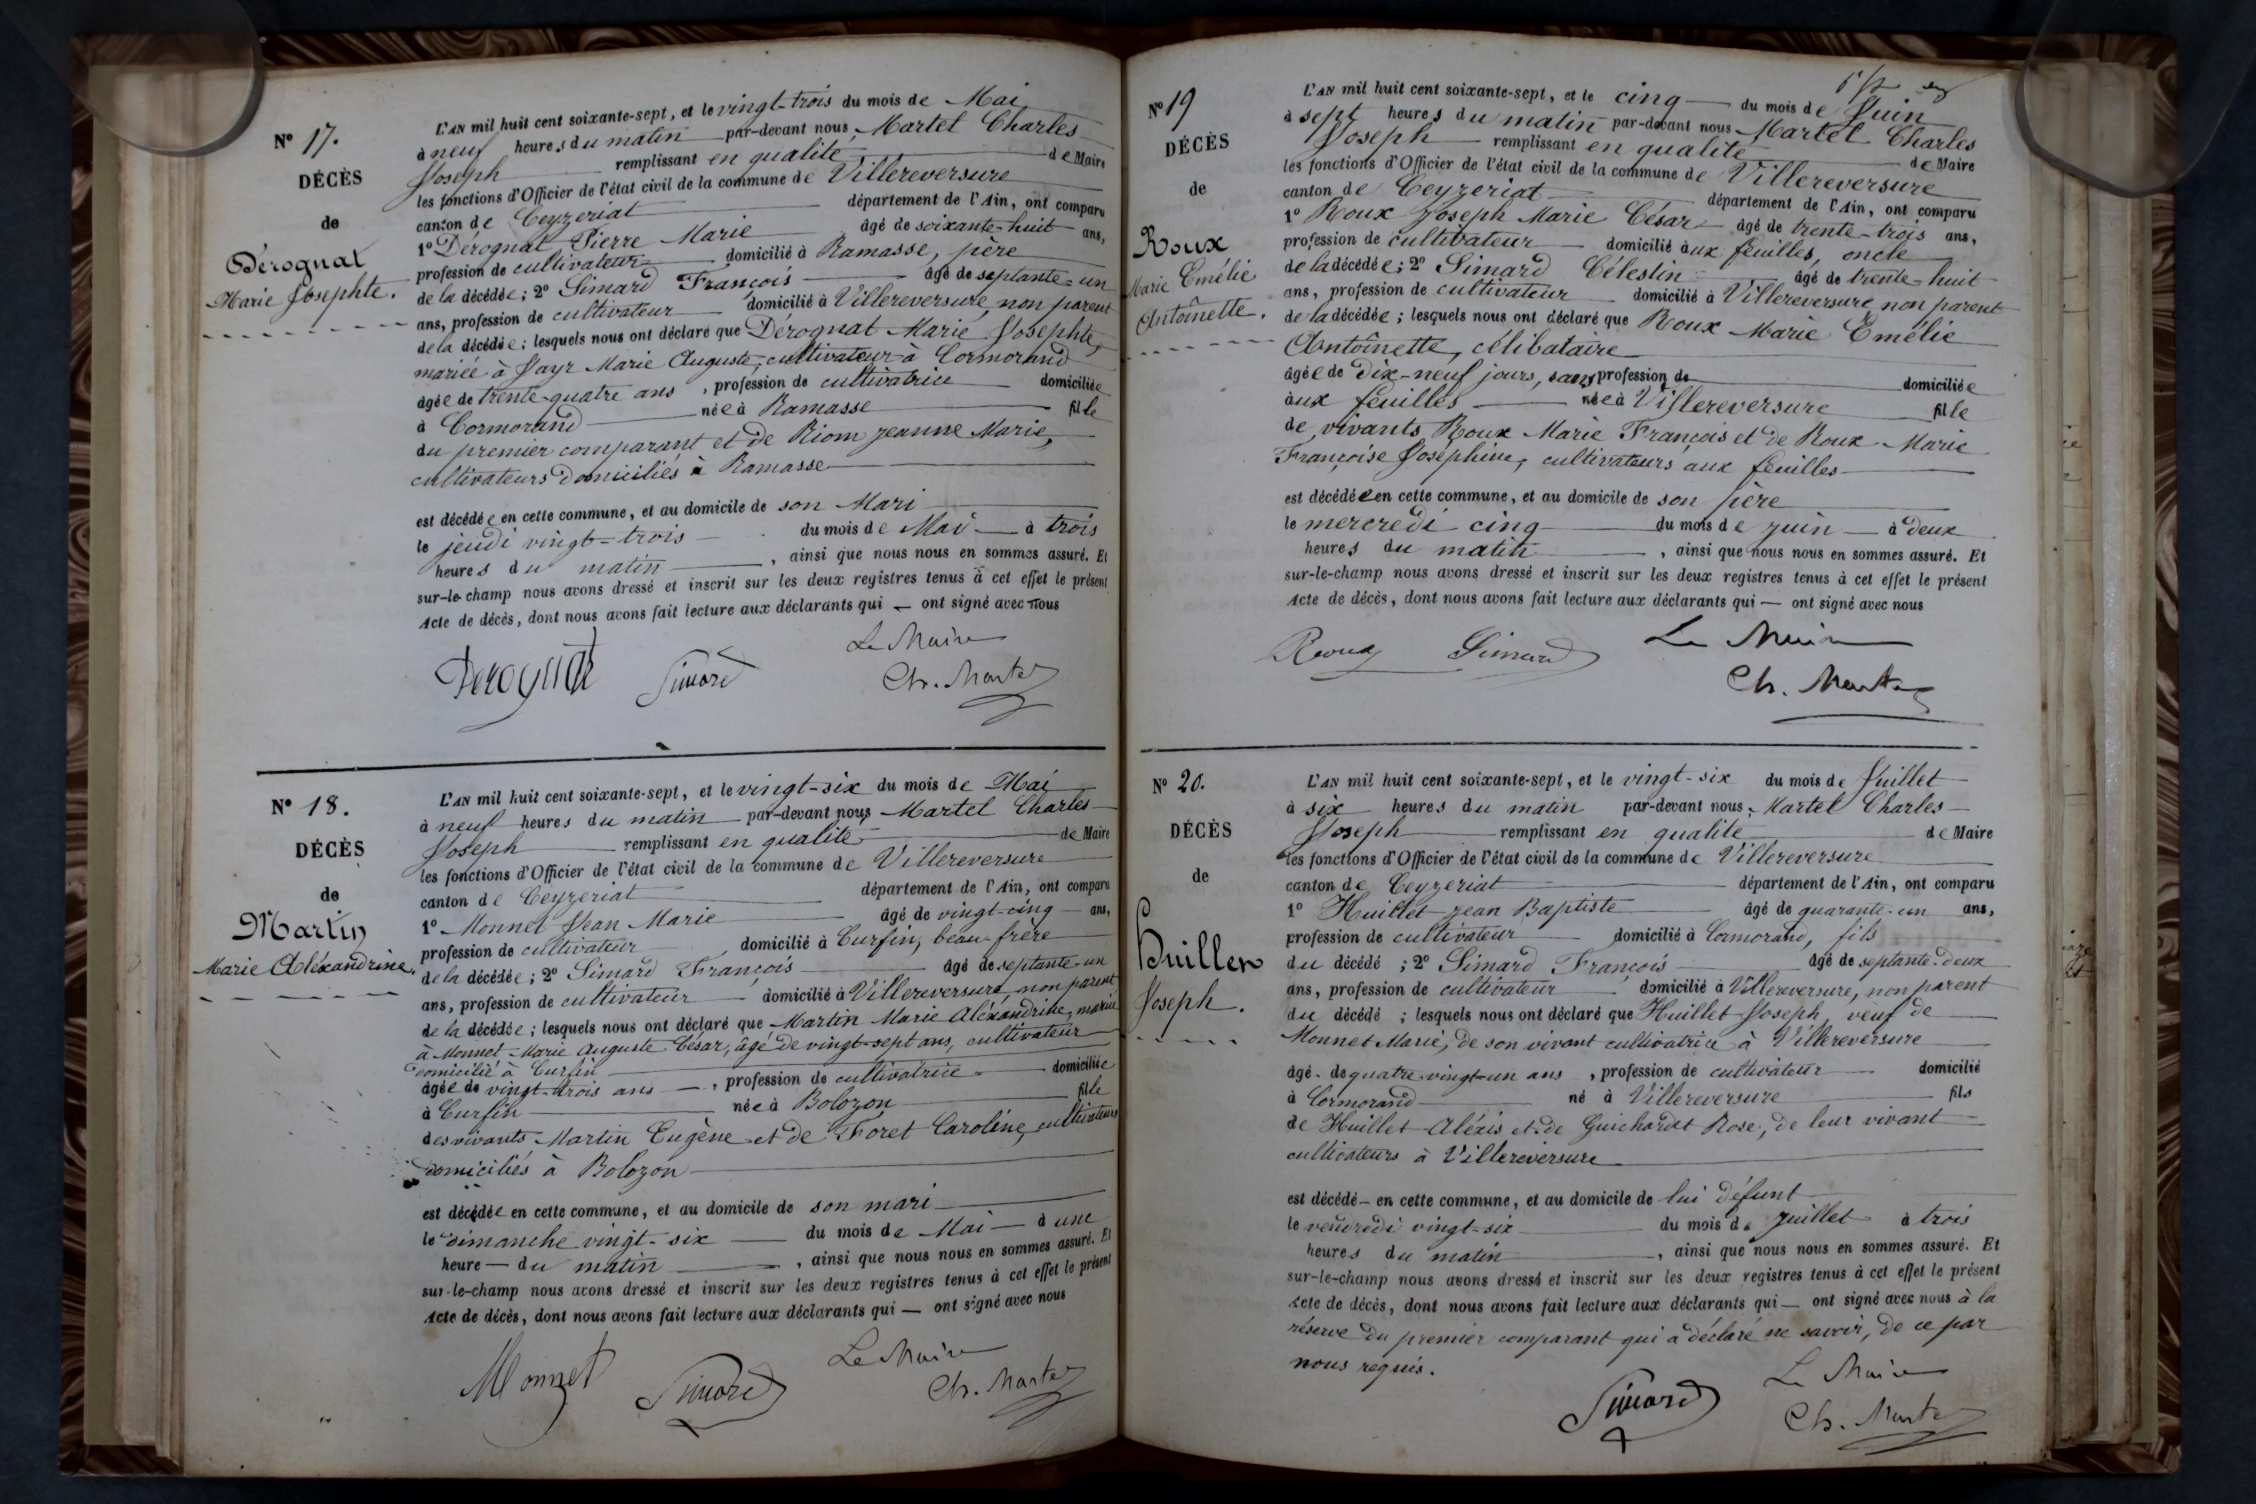 Nº 17.
DÉCÈS
de
Dérognat
Marie Josephte.
L'AN mil huit cent soixante-sept, et le vingt-trois du mois de Mai
à neuf heures du matin par-devant nous Martel Charles
Joseph remplissant en qualité de Maire
les fonctions d'Officier de l'état civil de la commune de Villereversure
canton de Ceyzeriat département de l'Ain, ont comparu
1º Dérognat Pierre Marie âgé de soixante-huit ans,
profession de cultivateur domicilié à Ramasse, père
de la décédée; 2º Simard François âgé de septante-un
ans, profession de cultivateur domicilié à Villereversure, non parent
de la décédée; lesquels nous ont déclaré que Dérognat Marie Josephte,
mariée à Jayr Marie Auguste, cultivateur à Cormorand
âgée de trente-quatre ans, profession de cultivatrice domiciliée
à Cormorand née à Ramasse fille
du premier comparant et de Riom Jeanne Marie,
cultivateurs domiciliés à Ramasse
est décédée en cette commune, et au domicile de son Mari
le jeudi vingt-trois du mois de Mai à trois
heures du matin, ainsi que nous nous en sommes assuré. Et
sur-le-champ nous avons dressé et inscrit sur les deux registres tenus à cet effet le présent
Acte de décès, dont nous avons fait lecture aux déclarants qui — ont signé avec nous
Derognat Simard Le Maire
Ch. Martel
Nº 18.
DÉCÈS
de
Martin
Marie Aléxandrine.
L'AN mil huit cent soixante-sept, et le vingt-six du mois de Mai
à neuf heures du matin par-devant nous Martel Charles
Joseph remplissant en qualité de Maire
les fonctions d'Officier de l'état civil de la commune de Villereversure
canton de Ceyzeriat département de l'Ain, ont comparu
1º Monnet Jean Marie âgé de vingt-cinq ans,
profession de cultivateur domicilié à Curfin, beau-frère
de la décédée; 2º Simard François âgé de septante-un
ans, profession de cultivateur domicilié à Villereversure, non parent
de la décédée; lesquels nous ont déclaré que Martin Marie Aléxandrine, mariée
à Monnet Marie Auguste César, âgé de vingt-sept ans, cultivateur
domicilié à Curfin
âgée de vingt-trois ans, profession de cultivatrice domiciliée
à Curfin née à Bolozon fille
des vivants Martin Eugène et de Foret Caroline, cultivateurs
domiciliés à Bolozon
est décédée en cette commune, et au domicile de son mari
le dimanche vingt-six du mois de Mai à une
heure — du matin, ainsi que nous nous en sommes assuré. Et
sur-le-champ nous avons dressé et inscrit sur les deux registres tenus à cet effet le présent
Acte de décès, dont nous avons fait lecture aux déclarants qui — ont signé avec nous
Monnet Simard Le Maire
Ch. Martel
Nº 19
DÉCÈS
de
Roux
Marie Emélie
Antoînette.
L'AN mil huit cent soixante-sept, et le cinq du mois de Juin
à sept heures du matin par-devant nous Martel Charles
Joseph remplissant en qualité de Maire
les fonctions d'Officier de l'état civil de la commune de Villereversure
canton de Ceyzeriat département de l'Ain, ont comparu
1º Roux Joseph Marie César âgé de trente-trois ans,
profession de cultivateur domicilié aux feuilles, oncle
de la décédée; 2º Simard Célestin âgé de trente-huit
ans, profession de cultivateur domicilié à Villereversure, non parent
de la décédée; lesquels nous ont déclaré que Roux Marie Emélie
Antoînette, célibataire
âgée de dix-neuf jours, sans profession de domiciliée
aux feuilles née à Villereversure fille
de vivants Roux Marie François et de Roux Marie
Françoise Joséphine, cultivateurs aux feuilles
est décédée en cette commune, et au domicile de son père
le mercredi cinq du mois de juin à deux
heures du matin, ainsi que nous nous en sommes assuré. Et
sur-le-champ nous avons dressé et inscrit sur les deux registres tenus à cet effet le présent
Acte de décès, dont nous avons fait lecture aux déclarants qui — ont signé avec nous
Roux Simard Le Maire
Ch. Martel
Nº 20.
DÉCÈS
de
Huillet
Joseph.
L'AN mil huit cent soixante-sept, et le vingt-six du mois de Juillet
à six heures du matin par-devant nous Martel Charles
Joseph remplissant en qualité de Maire
les fonctions d'Officier de l'état civil de la commune de Villereversure
canton de Ceyzeriat département de l'Ain, ont comparu
1º Huillet Jean Baptiste âgé de quarante-un ans,
profession de cultivateur domicilié à Cormorand, fils
du décédé; 2º Simard François âgé de septante-deux
ans, profession de cultivateur domicilié à Villereversure, non parent
du décédé; lesquels nous ont déclaré que Huillet Joseph, veuf de
Monnet Marie, de son vivant cultivatrice à Villereversure
âgé de quatre-vingt-un ans, profession de cultivateur domicilié
à Cormorand né à Villereversure fils
de Huillet Aléxis et de Guichardt Rose, de leur vivant
cultivateurs à Villereversure
est décédé en cette commune, et au domicile de lui défunt
le vendredi vingt-six du mois de juillet à trois
heures du matin, ainsi que nous nous en sommes assuré. Et
sur-le-champ nous avons dressé et inscrit sur les deux registres tenus à cet effet le présent
Acte de décès, dont nous avons fait lecture aux déclarants qui — ont signé avec nous à la
réserve du premier comparant qui a déclaré ne savoir, de ce par
nous requis.
Simard Le Maire
Ch. Martel